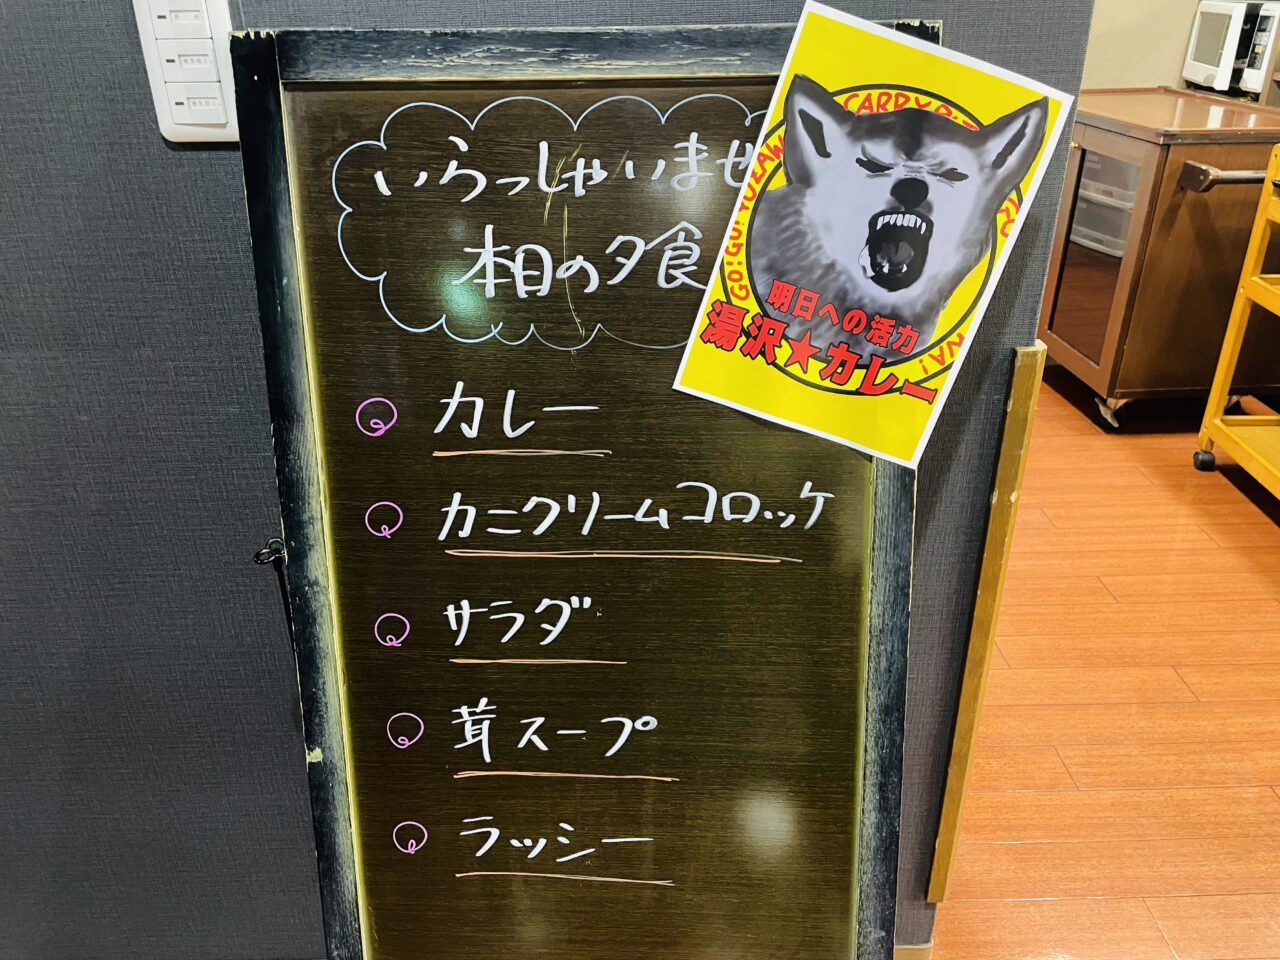 いらっしゃいませ
本日の夕食
カレー
カニクリームコロッケ
サラダ
茸スープ
ラッシー
GO!GO!YUZAWA
明日への活力
湯沢★カレー